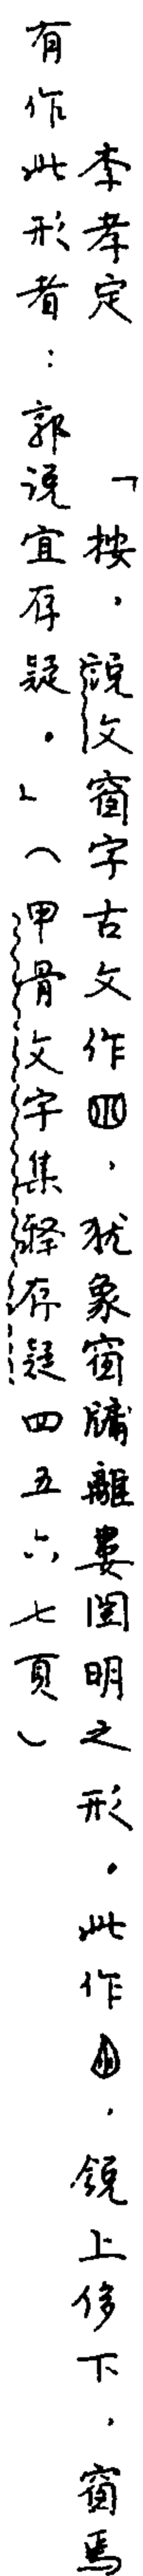 李孝定　「按，說文窗字古文作，犹象窗牖離婁闓明之形。此作，銳上侈下，窗焉
有作此形者：郭说宜存疑。」（甲骨文字集釋存疑四五六七頁）